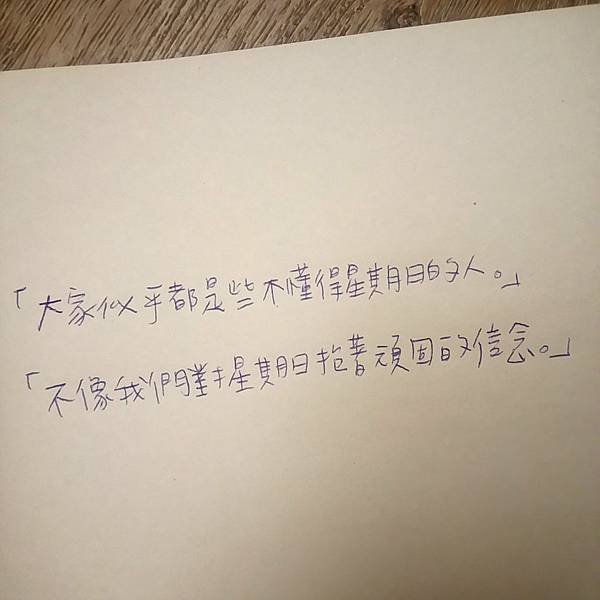 「大家似乎都是些不懂得星期日的人。」
「不像我們對星期日抱著頑固的信念。」